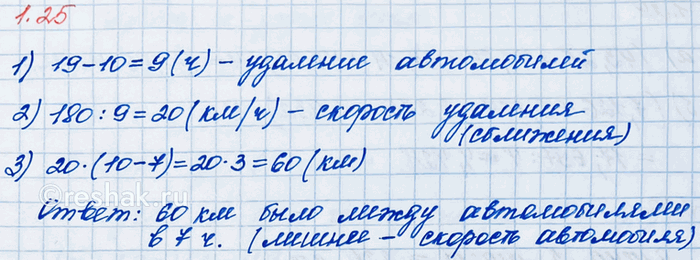 1.25
1) 19-10=9(ч) - удаление автомобилей
2) 180:9=20(км/ч) - скорость удаления
(сближения)
3) 20·(10-7)=20·3=60(км)
reshak.ru
Ответ: 60 км было между автомобилями
в 7 ч. (лишнее - скорость автомобиля)